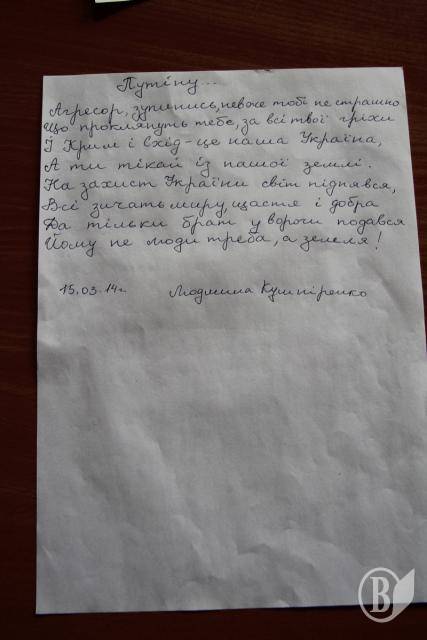 Путіну...
Агресор, зупинись, невже тобі не страшно
Що проклянуть тебе, за всі твої гріхи
І Крим і Схід - це наша Україна,
А ти тікай із нашої землі.
На захист України світ піднявся,
Всі зичать миру, щастя і добра
Да тільки брат у вороги подався
Йому не люди треба, а земля!
15.03.14г. Людмила Кушніренко
В